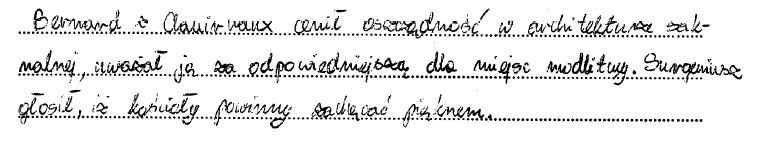 Bernard z Clairvaux cenił oszczędność w architekturze sak-
ralnej, uważał ją za odpowiedniejszą dla miejsc modlitwy. Surgeniusz
głosił, iż kościoły powinny zachęcać pięknem.